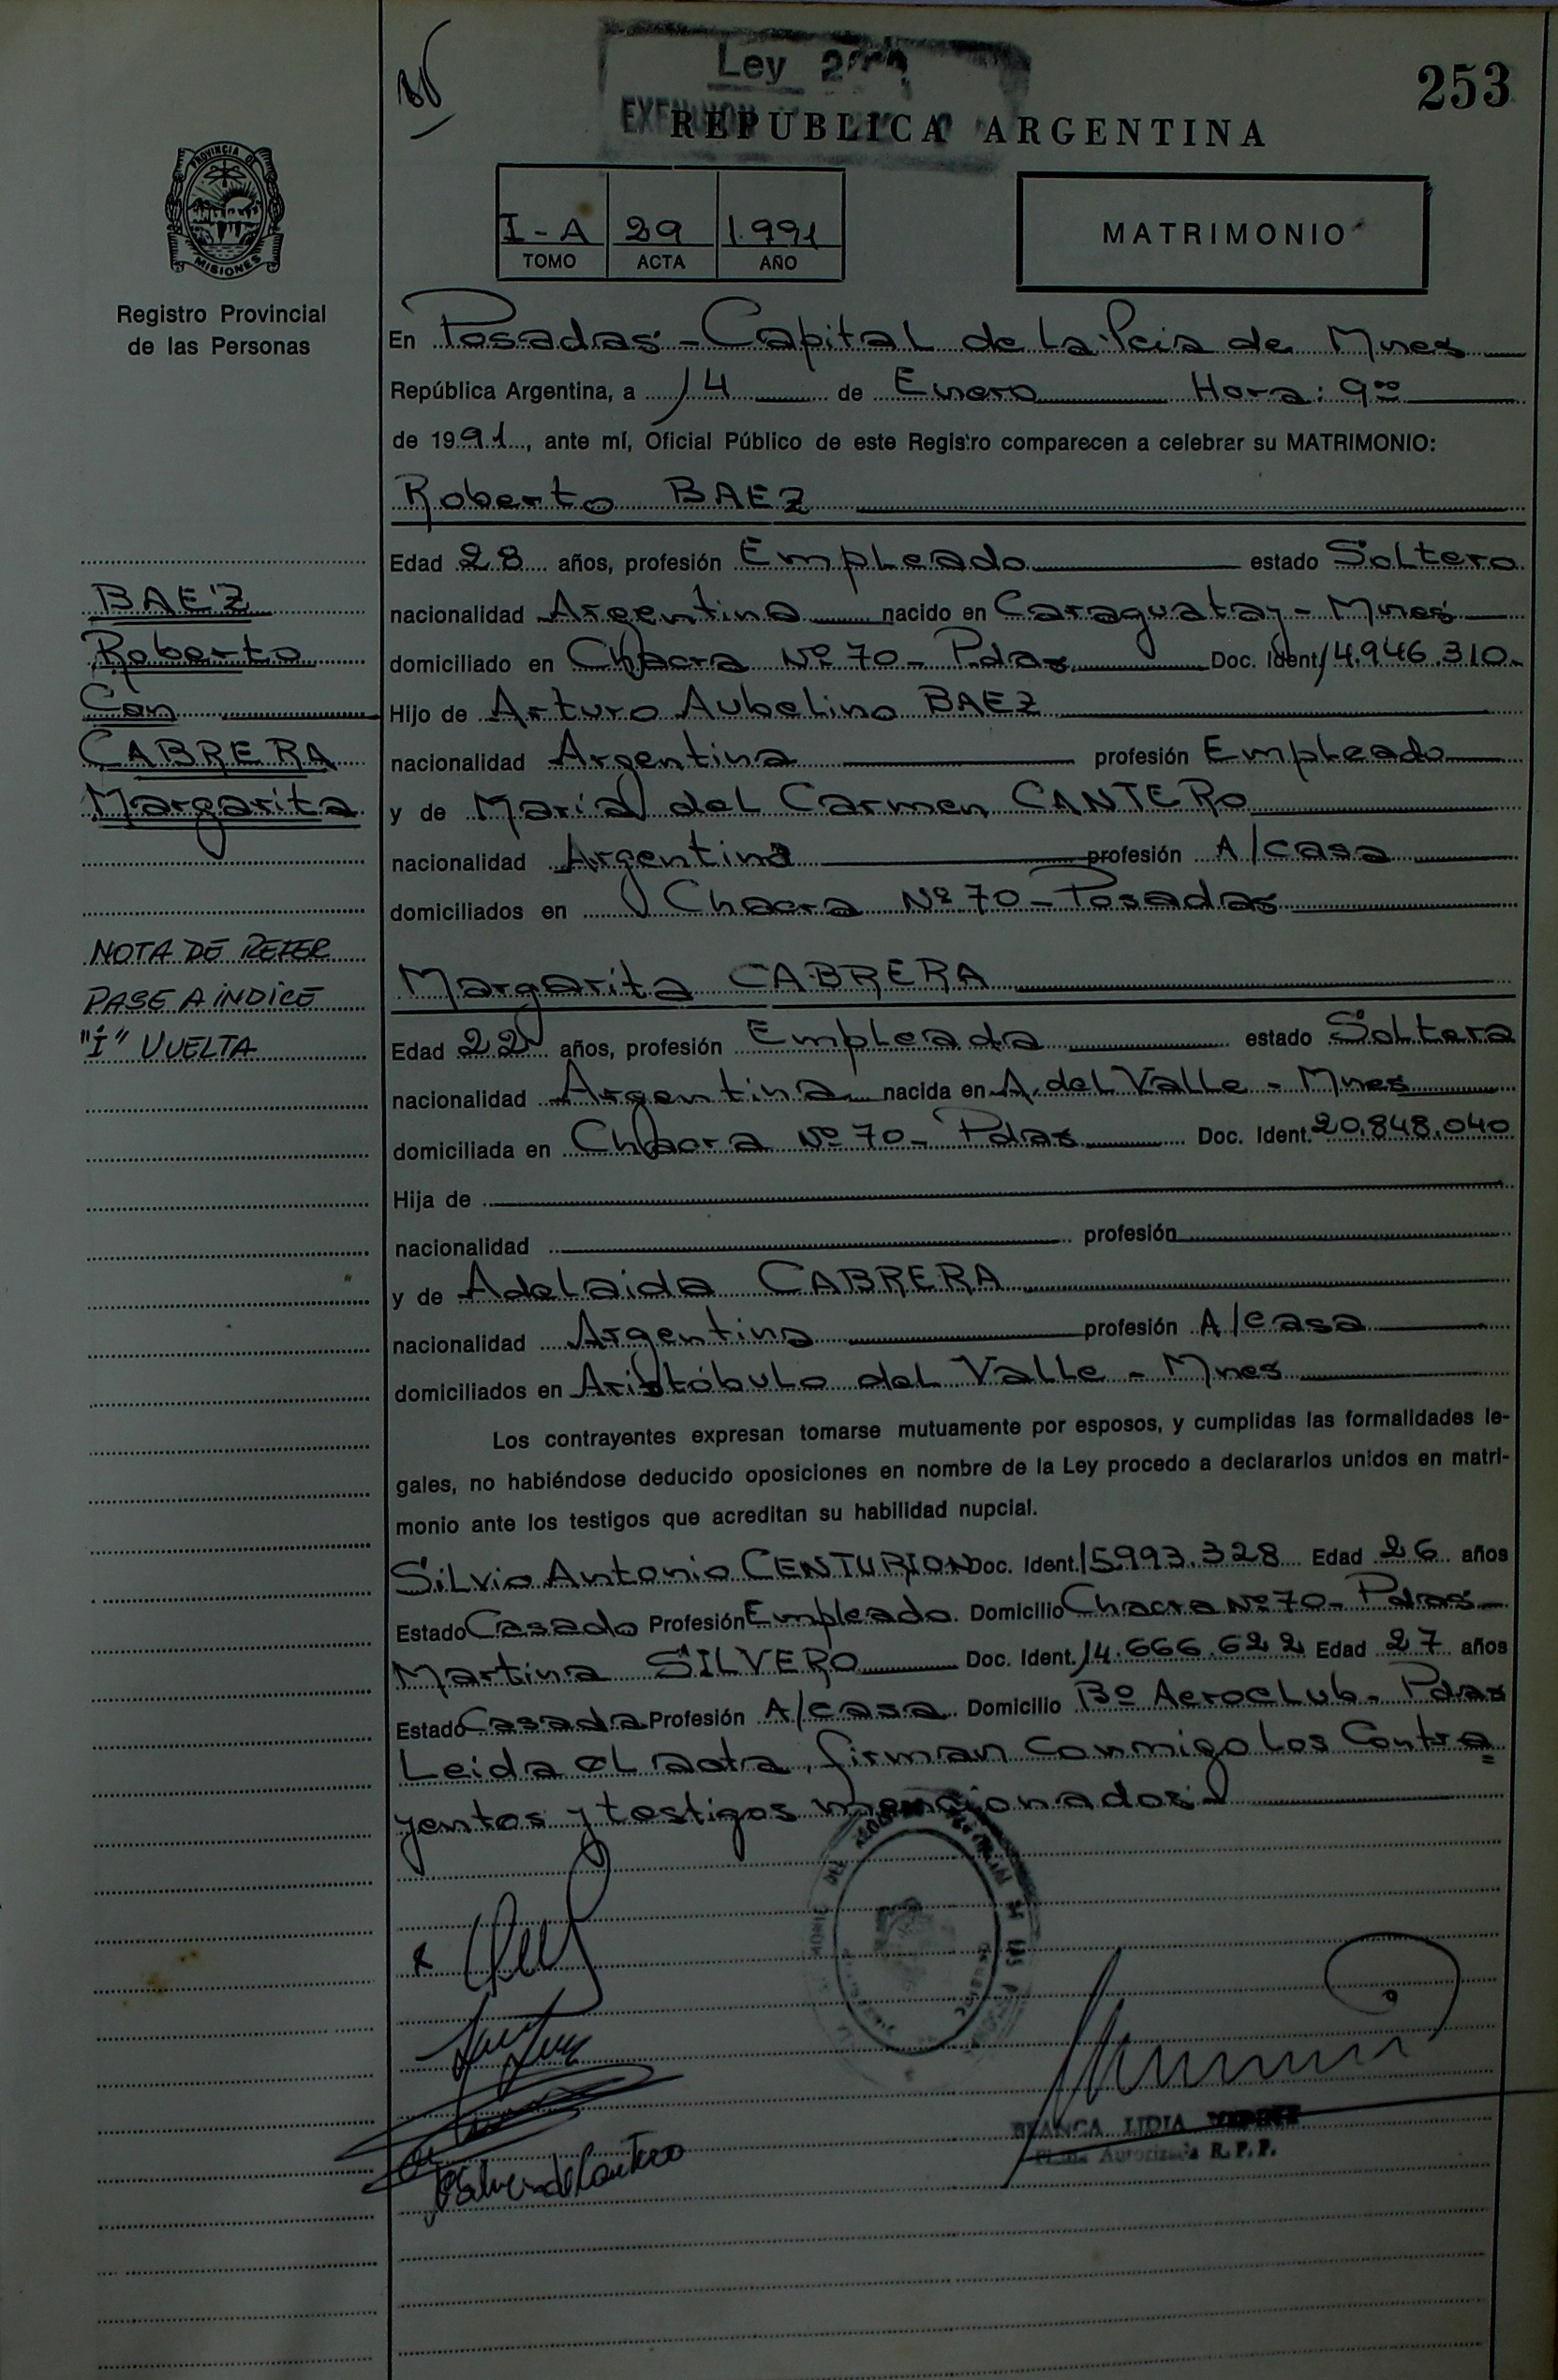 Ley
253
REPUBLICA ARGENTINA
PROVINCIA DE
MISIONES
Registro Provincial
de las Personas
I - A 29 1.991
TOMO ACTA AÑO
MATRIMONIO
En Posadas - Capital de la Pcia de Mnes
República Argentina, a 14 de Enero Hora: 9⁰⁰
de 1991, ante mí, Oficial Público de este Registro comparecen a celebrar su MATRIMONIO:
Roberto BAEZ
Edad 28 años, profesión Empleado estado Soltero
nacionalidad Argentina nacido en Caraguatay - Mnes
domiciliado en Chacra Nº 70 - Pdas Doc. Ident. 14.946.310.
Hijo de Arturo Aubelino BAEZ
nacionalidad Argentina profesión Empleado
y de María del Carmen CANTERO
nacionalidad Argentina profesión A/casa
domiciliados en Chacra Nº 70 - Posadas
BAEZ
Roberto
Con
CABRERA
Margarita
NOTA DE REFER
PASE A INDICE
"I" VUELTA
Margarita CABRERA
Edad 22 años, profesión Empleada estado Soltera
nacionalidad Argentina nacida en A. del Valle - Mnes
domiciliada en Chacra Nº 70 - Pdas Doc. Ident. 20.848.040
Hija de
nacionalidad profesión
y de Adelaida CABRERA
nacionalidad Argentina profesión A/casa
domiciliados en Aristóbulo del Valle - Mnes
Los contrayentes expresan tomarse mutuamente por esposos, y cumplidas las formalidades le-
gales, no habiéndose deducido oposiciones en nombre de la Ley procedo a declararlos unidos en matri-
monio ante los testigos que acreditan su habilidad nupcial.
Silvio Antonio CENTURION Doc. Ident. 15993.328 Edad 26 años
Estado Casado Profesión Empleado. Domicilio Chacra Nº 70 - Pdas -
Martina SILVERO Doc. Ident. 14.666.622 Edad 27 años
Estado Casada Profesión A/casa Domicilio Bº Aeroclub - Pdas
Leida el acta, firman conmigo los Contra
yentes y testigos mencionados.
BLANCA LIDIA
Firma Autorizada R.P.P.